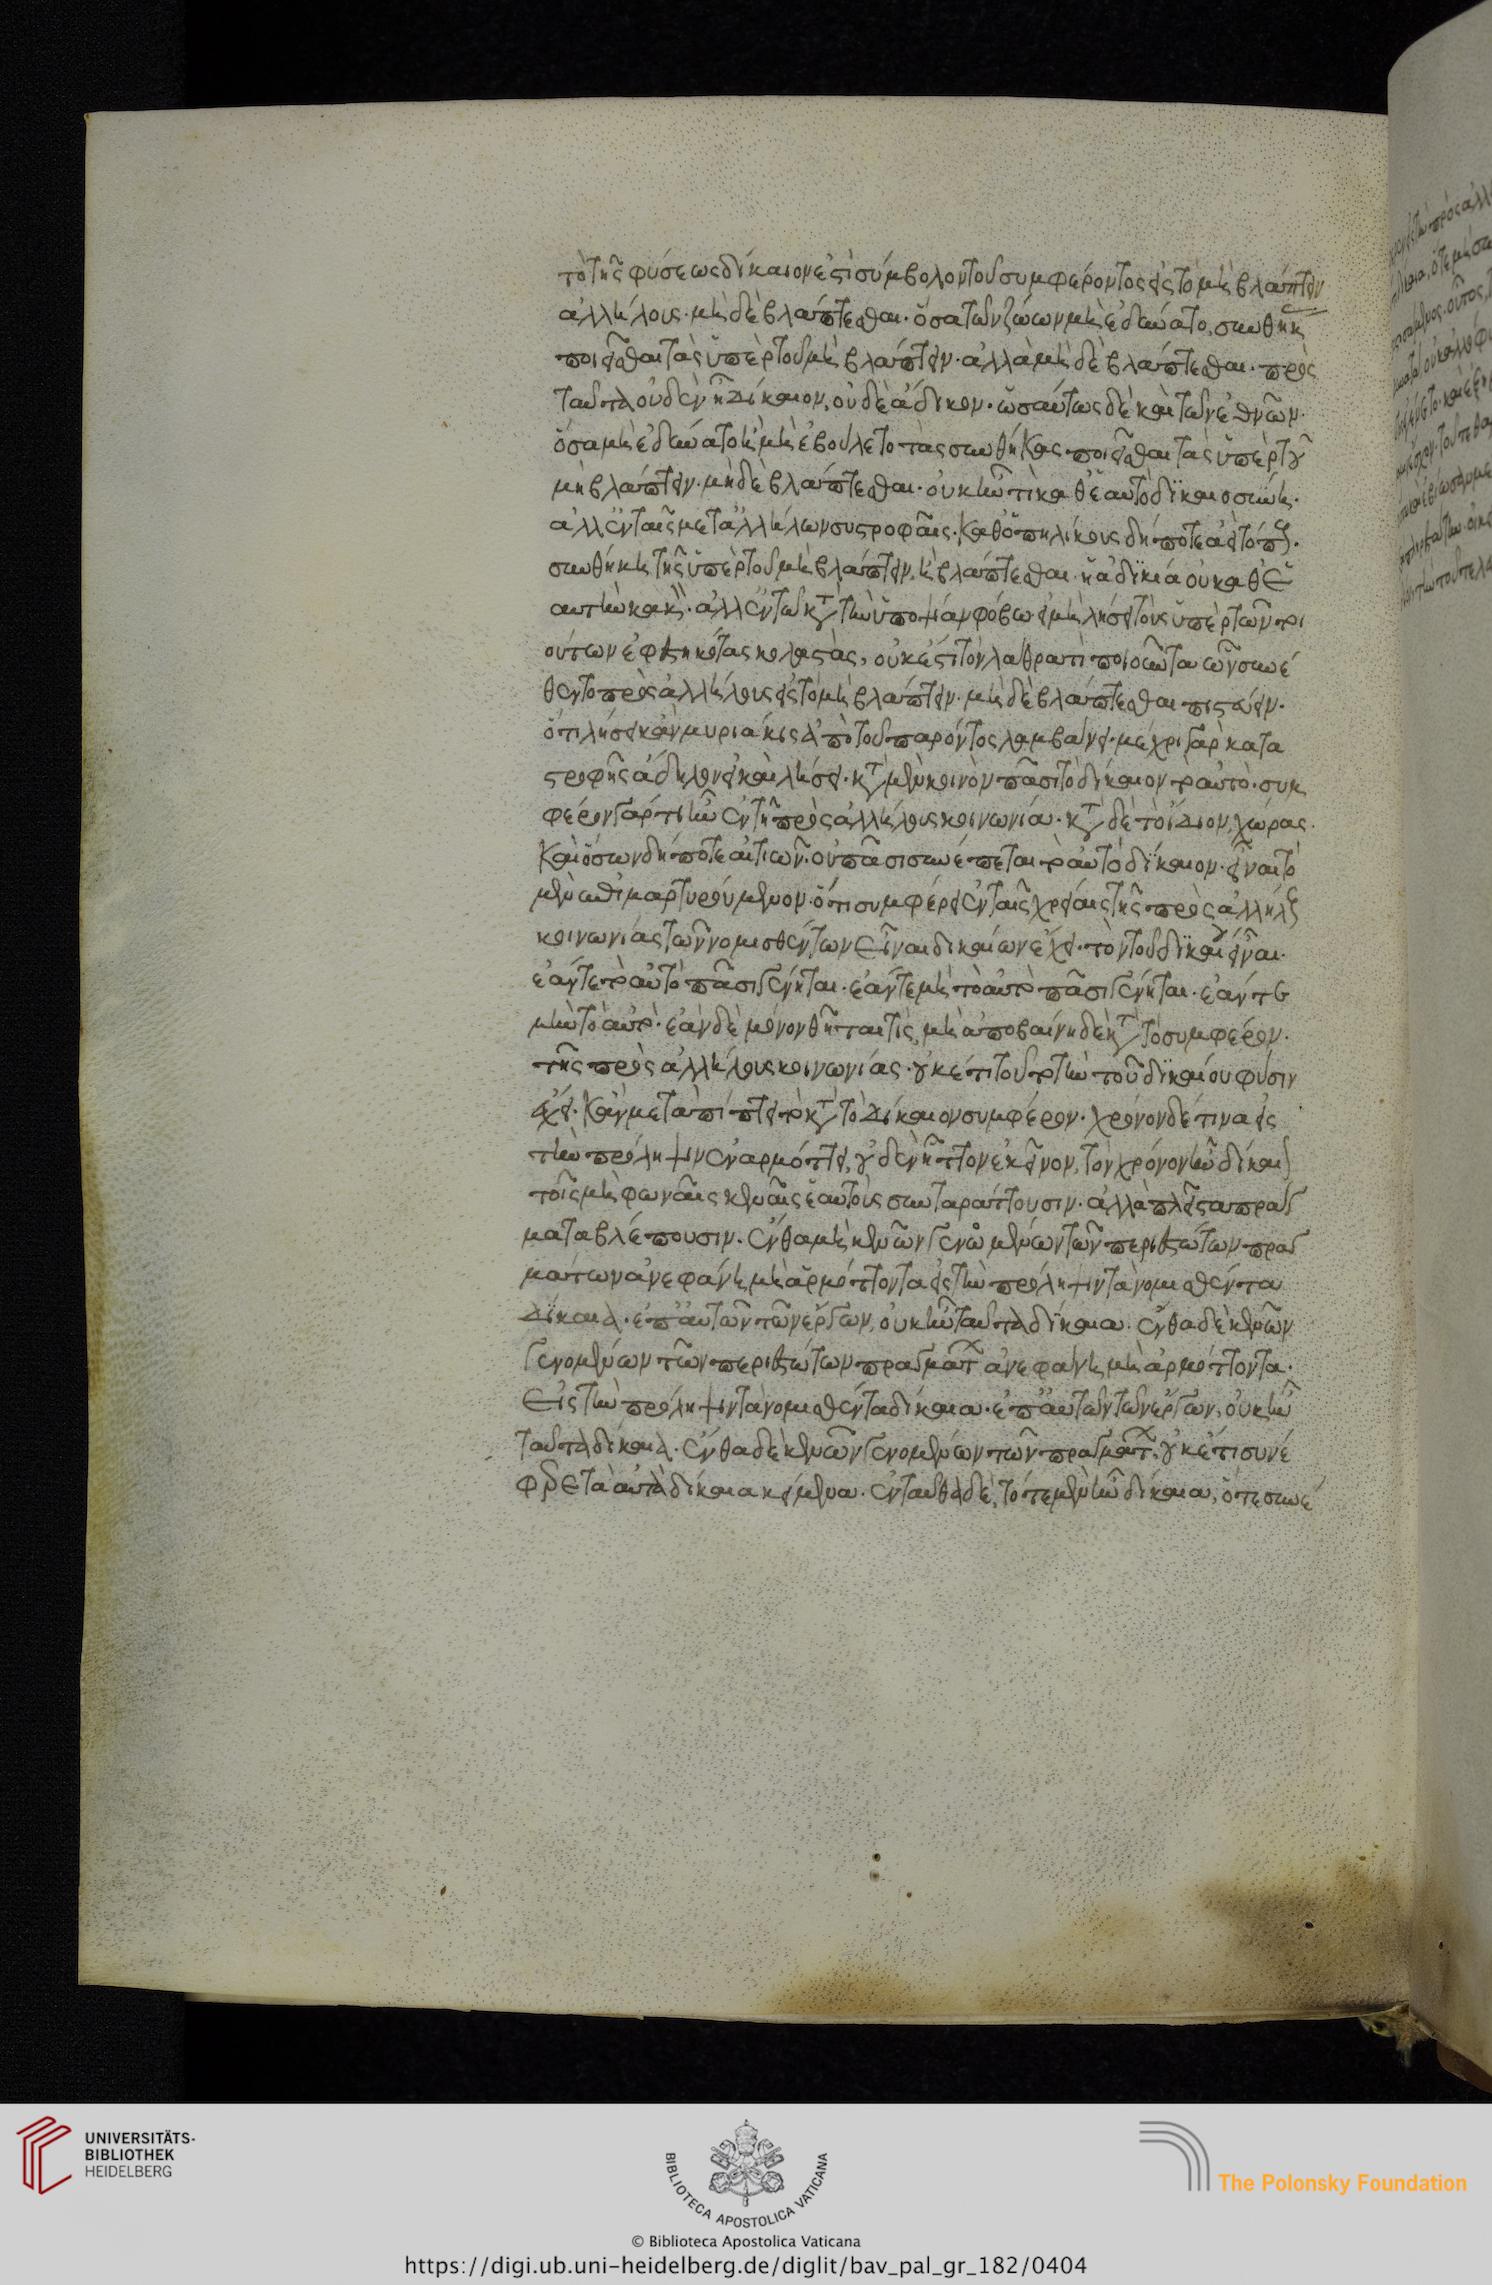 τὸ τῆς φύσεως δίκαιον ἐστὶ σύμβολον τοῦ συμφέροντος εἰς τὸ μὴ βλάπτειν
ἀλλήλους· μὴ δὲ βλάπτεσθαι· ὅσα τῶν ζώων μὴ ἐδύνατο, συνθήκ
ποιεῖσθαι τὰς ὑπὲρ τοῦ μὴ βλάπτειν· ἀλλὰ μὴ δὲ βλάπτεσθαι· πρὸς
ταῦτα οὐδὲν ἦ δίκαιον, οὐδὲ ἄδικον· ὡσαύτως δὲ καὶ τῶν ἐθνῶν·
ὅσα μὴ ἐδύνατο ἢ μὴ ἐβούλετο τὰς συνθήκας ποιεῖσθαι τὰς ὑπὲρ τοῦ
μὴ βλάπτειν· μὴ δὲ βλάπτεσθαι· οὐκ ἦν τι καθ' ἑαυτὸ δικαιοσύνη·
ἀλλ' ἐν ταῖς μετ' ἀλλήλων συστροφαῖς· καθ' ὁπηλίκους δή ποτε ἀεὶ τόπους·
συνθήκη τῆς ὑπὲρ τοῦ μὴ βλάπτειν, ἢ βλάπτεσθαι· ἡ ἀδικία οὐ καθ' ἑ
αυτὴν κακὴ· ἀλλ' ἐν τῷ κατὰ τὴν ὑποψίαν φόβω· εἰ μὴ λήσει τοὺς ὑπὲρ τῶν τοι
ούτων ἐφεστηκότας κολαστάς, οὐκ ἔστι τὸν λάθρα τὶ ποιοῦντα ὧν συνέ
θεντο πρὸς ἀλλήλους εἰς τὸ μὴ βλάπτειν· μὴ δὲ βλάπτεσθαι πιστεύειν·
ὅτι λήσει κἂν μυριάκις ἀπὸ τοῦ παρόντος λαμβάνει· μέχρι γὰρ κατα
στροφῆς ἄδηλον εἰ καὶ λήσει· κατὰ μὲν κοινὸν πᾶσι τὸ δίκαιον τὸ αὐτὸ· συμ
φέρον γάρ τι ἦν ἐν τῇ πρὸς ἀλλήλους κοινωνία· κατὰ δὲ τὸ ἴδιον, χώρας·
καὶ ὅσων δή ποτε αἰτιῶν· οὐ πᾶσι συνέπεται τὸ αὐτὸ δίκαιον· εἶναι τὸ
μὲν ἐπιμαρτυρούμενον· ὅτι συμφέρει ἐν ταῖς χρείαις τῆς πρὸς ἀλλήλους
κοινωνίας τῶν νομισθέντων εἶναι δικαίων ἔχει· τὸν τοῦ δικαίου εἶναι·
ἐάν τε τὸ αὐτὸ πᾶσι γένηται· ἐάν τε μὴ τὸ αὐτὸ πᾶσι γένηται· ἐάν τε
μὴ τὸ αὐτὸ· ἐὰν δὲ μόνον θῆται τὶς, μὴ ἀποβαίνη δὲ κατὰ τὸ συμφέρον·
τῆς πρὸς ἀλλήλους κοινωνίας· οὐκέτι τοῦτο τὴν τοῦ δικαίου φύσιν
ἔχει· κἂν μεταπίπτει τὸ κατὰ τὸ δίκαιον συμφέρον· χρόνον δέ τινα εἰς
τὴν πρόληψιν ἐναρμόττει, οὐδὲν ἧττον ἐκεῖνον, τὸν χρόνον ἦν δίκαιον
τοῖς μὴ φωναῖς κεναῖς ἑαυτοὺς συνταράττουσιν· ἀλλὰ πλεῖστα πράγ
ματα βλέπουσιν· ἔνθα μὴ καινῶν γενομένων τῶν περιεστώτων πραγ
μάτων ἀνεφάνη μὴ ἁρμόττοντα εἰς τὴν πρόληψιν τὰ νομισθέντα
δίκαια· ἐπ' αὐτῶν τῶν ἔργων, οὐκ ἦν ταῦτα δίκαια· ἔνθα δὲ καινῶν
γενομένων τῶν περιεστώτων πραγμάτων ἀνεφάνη μὴ ἁρμόττοντα·
εἰς τὴν πρόληψιν τὰ νομισθέντα δίκαια· ἐπ' αὐτῶν τῶν ἔργων, οὐκ ἦν
ταῦτα δίκαια· ἔνθα δὲ καινῶν γενομένων τῶν πραγμάτων, οὐκέτι συνέ
φερε τὰ αὐτὰ δίκαια κείμενα· ἐνταῦθα δὲ, τότε μὲν ἦν δίκαια, ὅτε συνέ
UNIVERSITÄTS-
BIBLIOTHEK
HEIDELBERG
BIBLIOTECA APOSTOLICA VATICANA
The Polonsky Foundation
© Biblioteca Apostolica Vaticana
https://digi.ub.uni-heidelberg.de/diglit/bav_pal_gr_182/0404